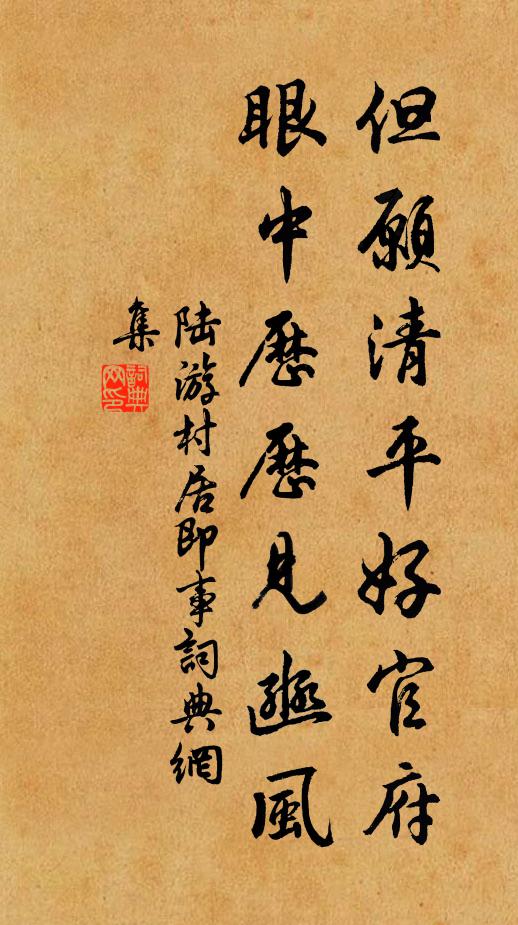 但願清平好官府
眼中歷歷見豳風
陸游村居即事詞典網
集
詞典
網印